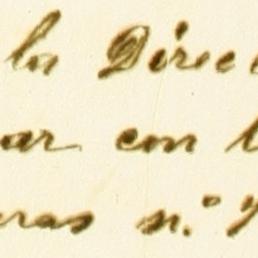 la Direc
ar con
ras n.º